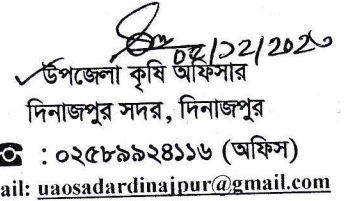 ০৫/১২/২০২৩
উপজেলা কৃষি অফিসার
দিনাজপুর সদর, দিনাজপুর
☎ : ০২৫৮৯৯২৪১১৬ (অফিস)
ail: uaosadardinajpur@gmail.com